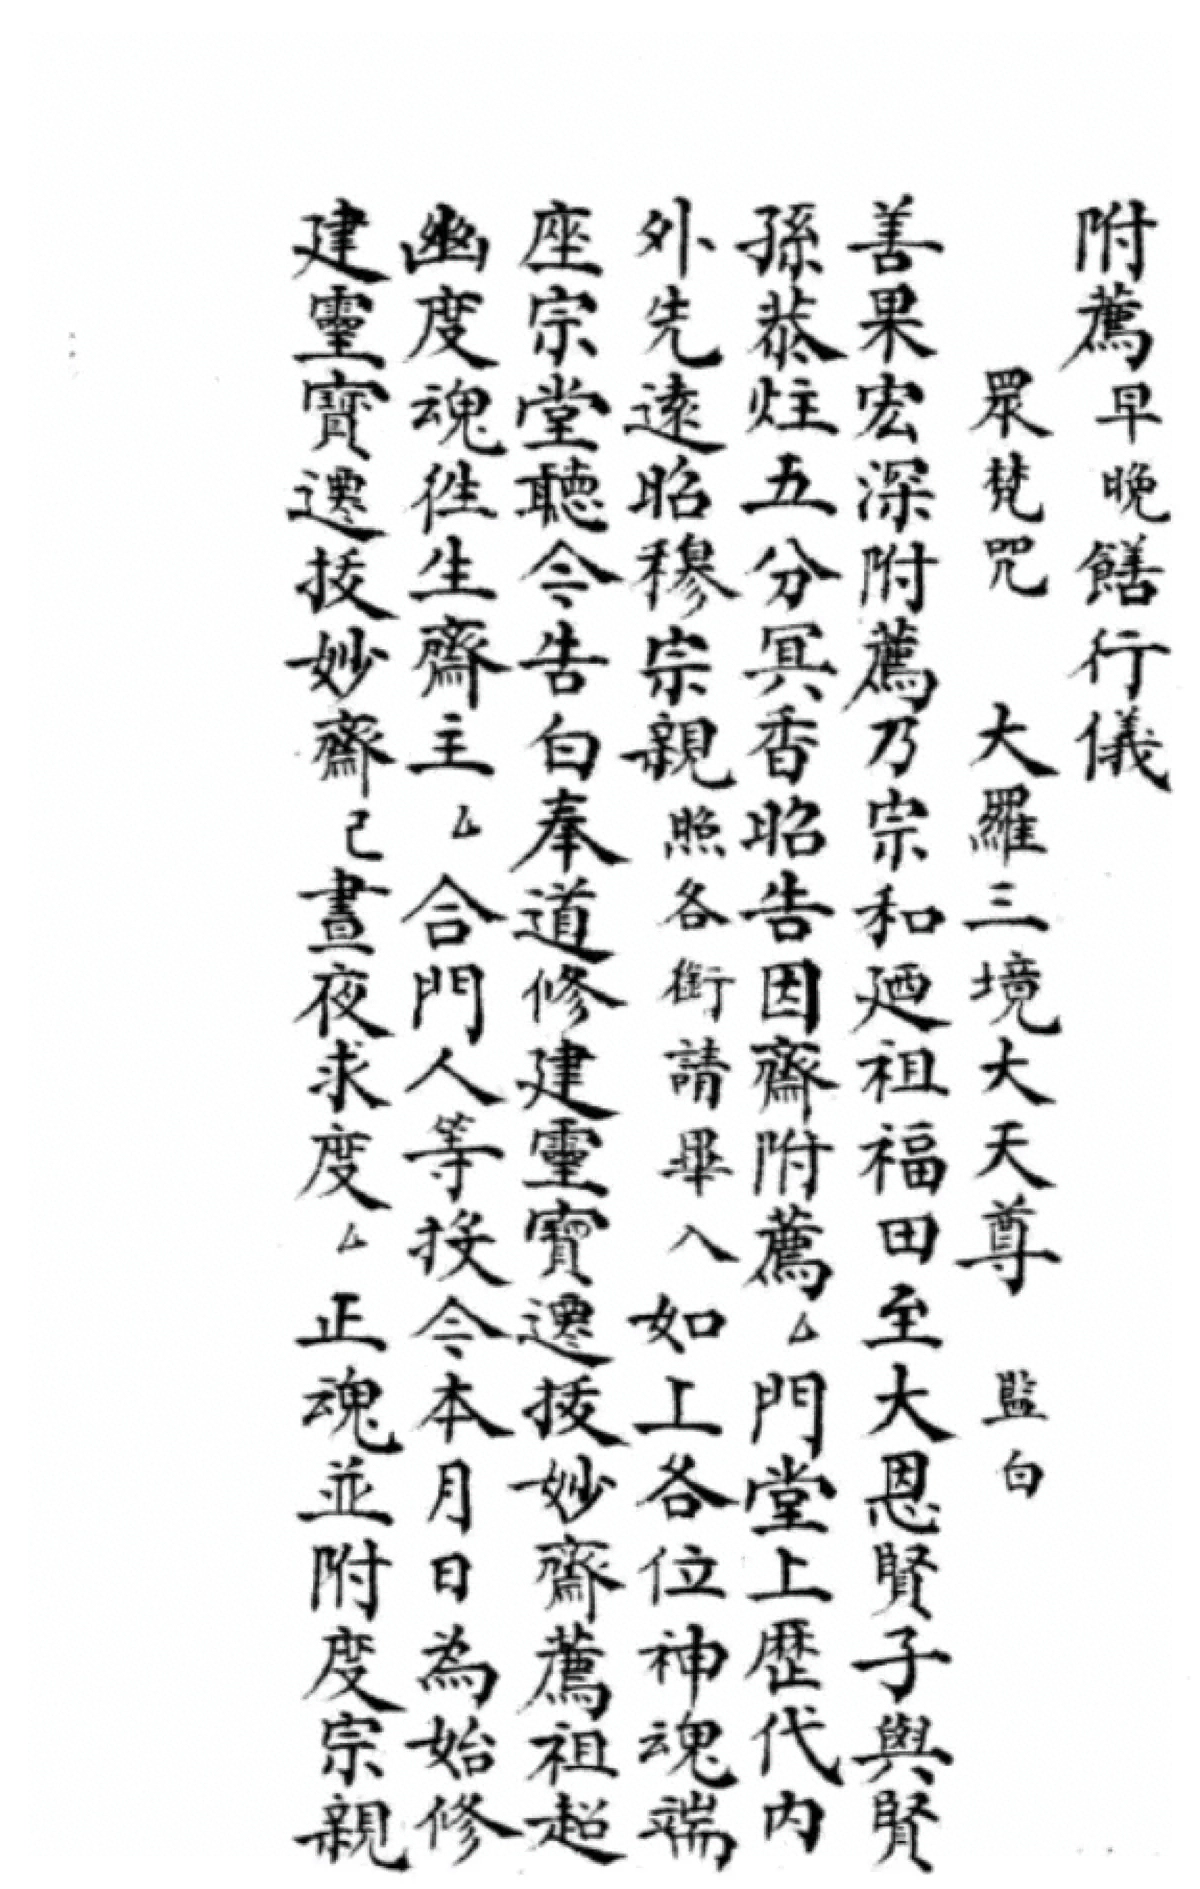 附薦早晚饍行儀
眾梵咒　大羅三境大天尊　監白
善果宏深附薦乃宗和廼祖福田至大恩賢子與賢
孫恭炷五分冥香昭告因齋附薦厶門堂上歷代內
外先遠昭穆宗親照各銜請畢入如上各位神魂端
座宗堂聽令告白奉道修建靈寶遷拔妙齋薦祖超
幽度魂徃生齋主厶合門人等投令本月日為始修
建靈寶遷拔妙齋已晝夜求度厶正魂並附度宗親